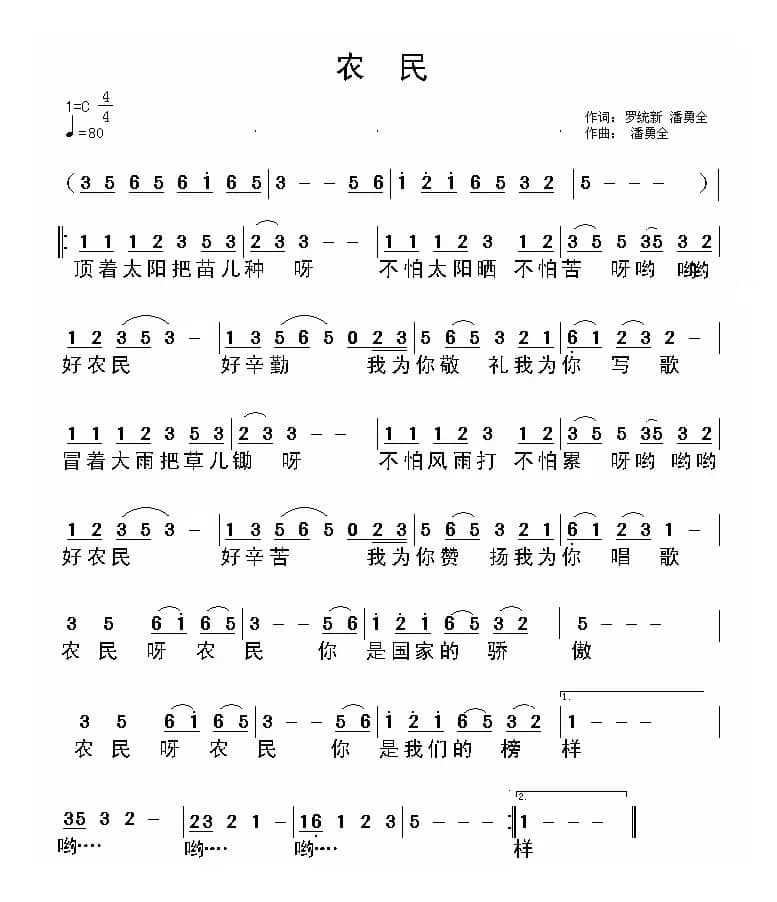 农 民
1=C 4/4
♩=80
作词: 罗统新 潘勇全
作曲: 潘勇全
(3 5 6 5 6 i 6 5 | 3 - - 5 6 | i 2 i 6 5 3 2 | 5 - - )|
1 1 1 2 3 5 3 | 2 3 3 - - | 1 1 1 2 3 | 3 5 5 35 3 2
顶着太阳把苗儿种 呀 不怕太阳晒 不怕苦 呀哟 哟哟
1 2 3 5 3 - | 1 3 5 6 5 0 2 3 | 5 6 5 3 2 1 | 6 1 2 3 2 -
好农民 好辛勤 我为你敬 礼我为你 写 歌
1 1 1 2 3 5 3 | 2 3 3 - - | 1 1 1 2 3 | 3 5 5 35 3 2
冒着大雨把草儿锄 呀 不怕风雨打 不怕累 呀哟 哟哟
1 2 3 5 3 - | 1 3 5 6 5 0 2 3 | 5 6 5 3 2 1 | 6 1 2 3 1 -
好农民 好辛苦 我为你赞 扬我为你 唱 歌
3 5 6 i 6 5 | 3 - - 5 6 | i 2 i 6 5 3 2 | 5 - -
农 民 呀 农 民 你 是国家的 骄 傲
1.
3 5 6 i 6 5 | 3 - - 5 6 | i 2 i 6 5 3 2 | 1 - -
农 民 呀 农 民 你 是我们的 榜 样
2.
35 3 2 - | 23 2 1 - | 16 1 2 3 | 5 - - :‖ 1 - - ‖
哟···· 哟···· 哟···· 样